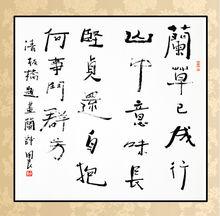 蘭草已成行
山中意味長
堅貞還自抱
何事鬥群芳
清板橋題畫蘭詩